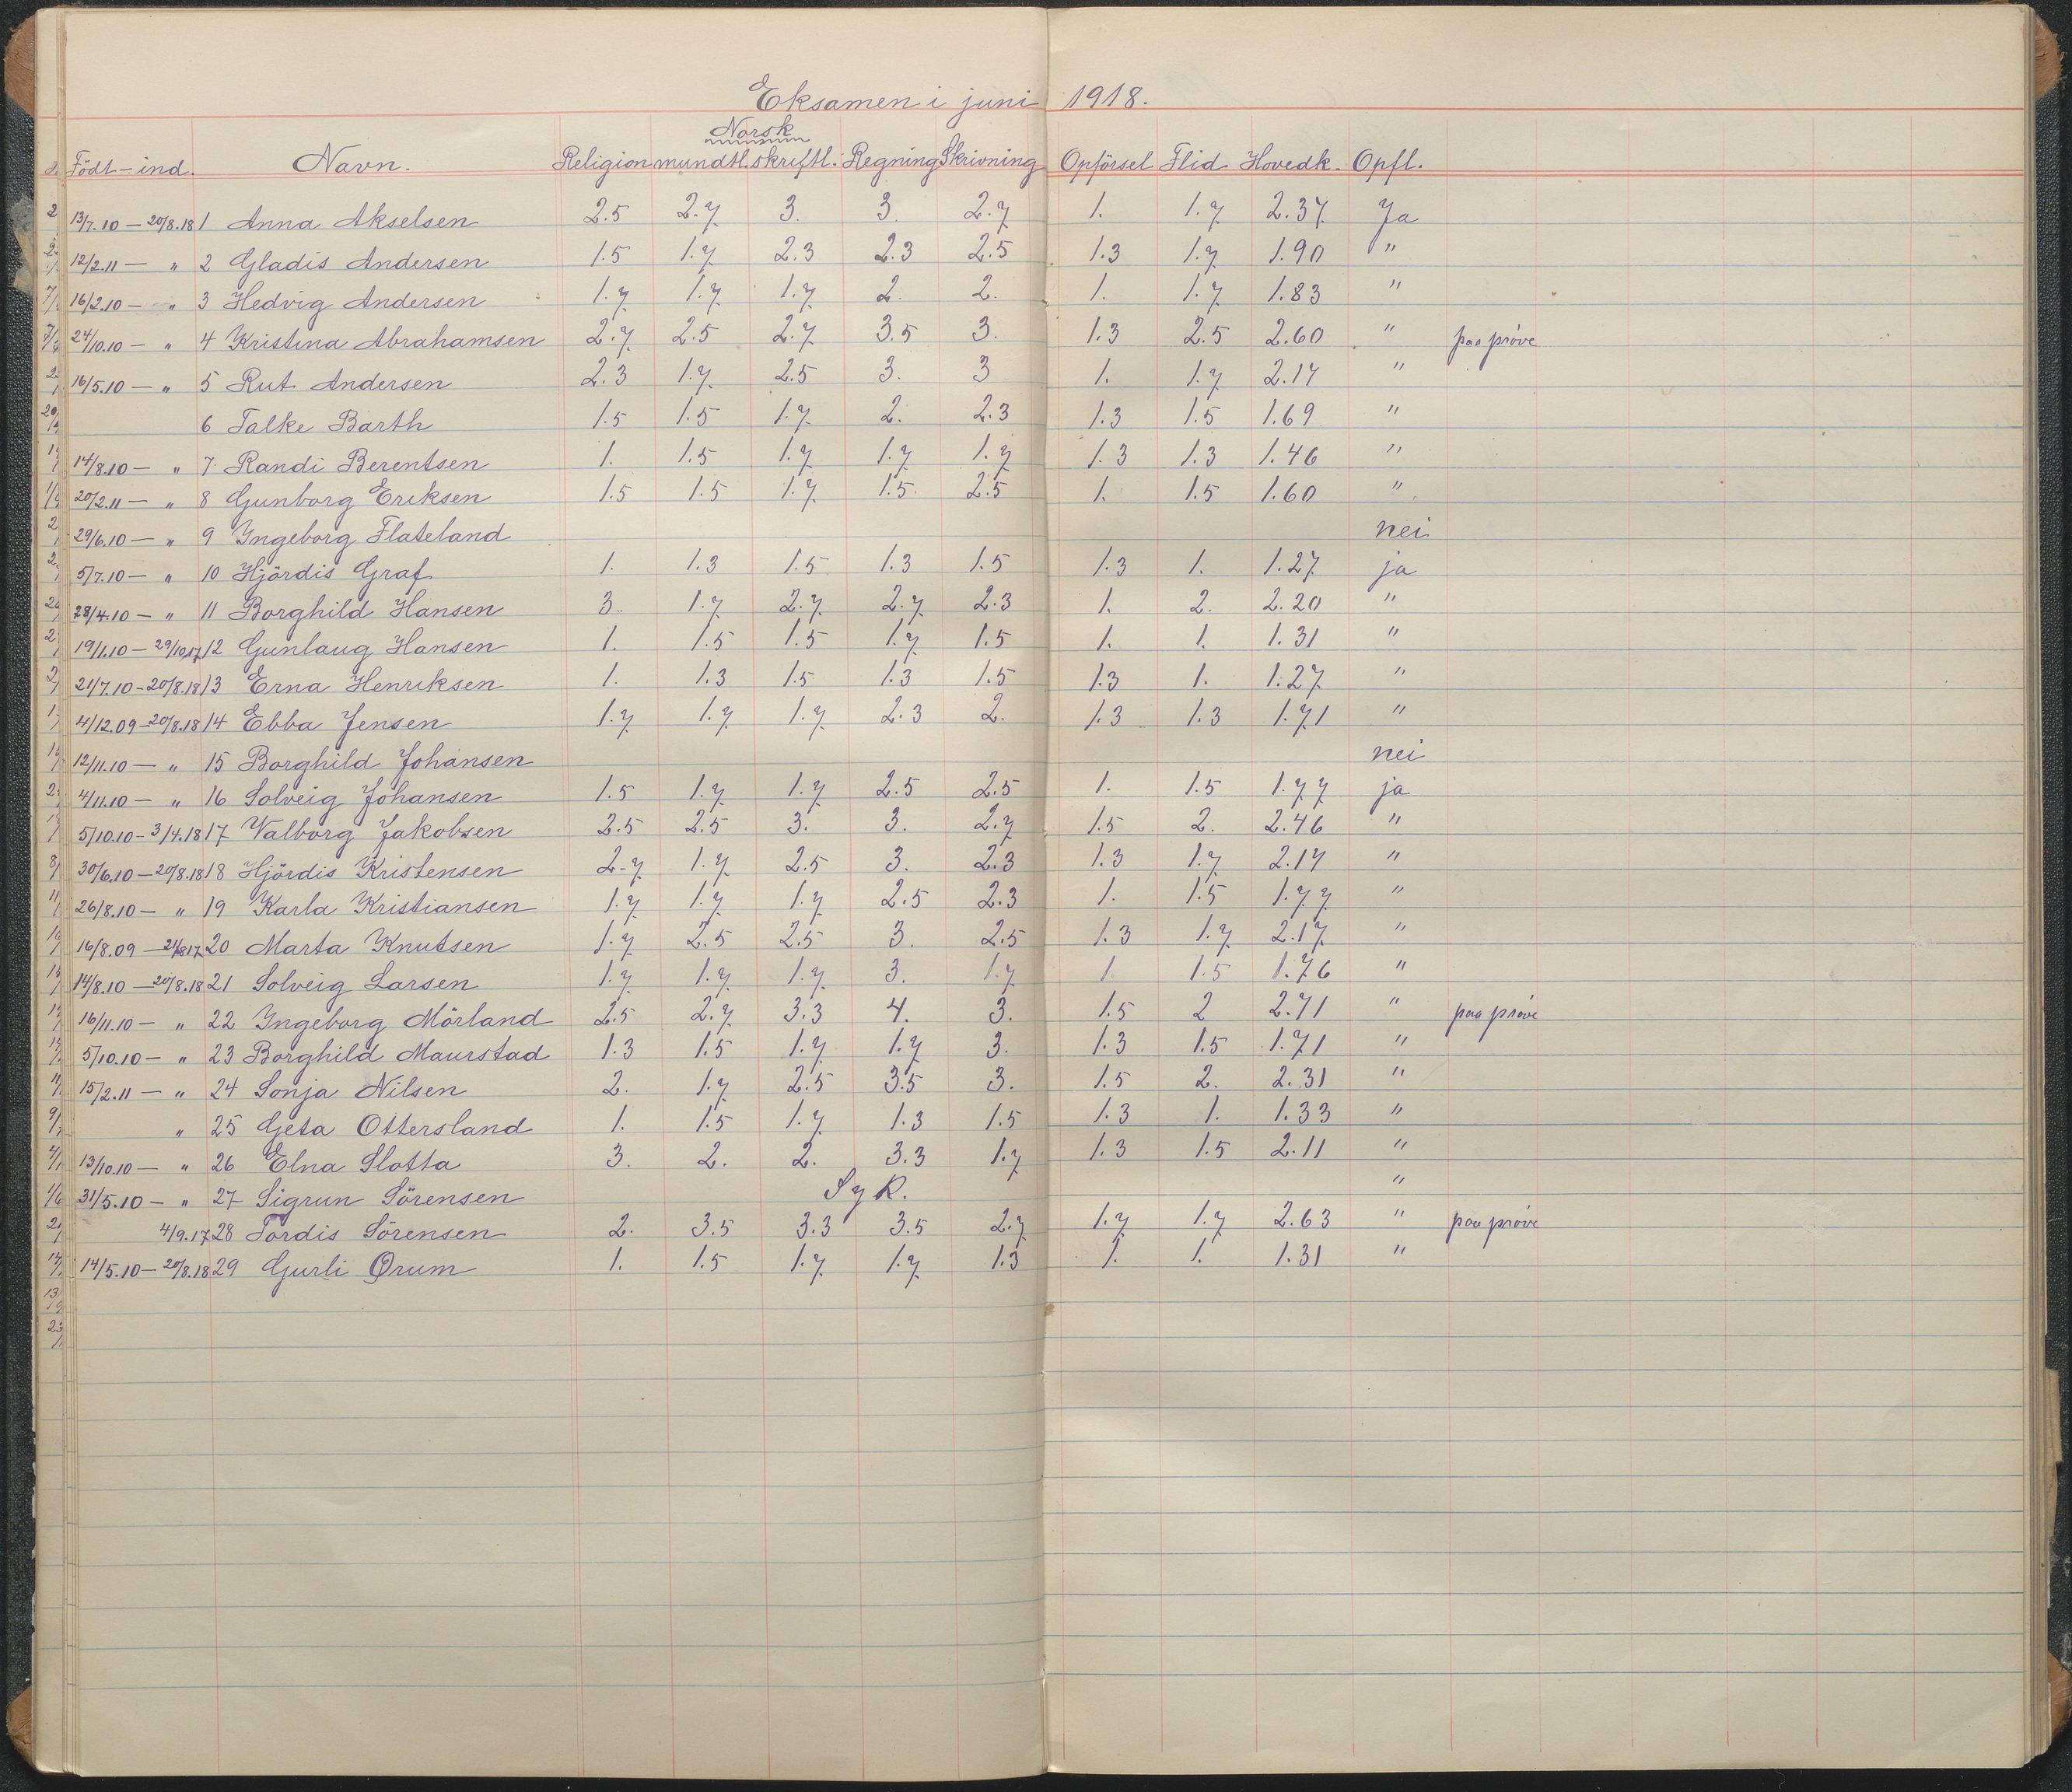 Eksamen i juni 1918.
Norsk
Födt - ind. Navn. Religion mundtl. skriftl. Regning Skrivning Opförsel Flid Hovedk. Opfl.
13/7.10 — 20/8.18 1 Anna Akselsen 2.5 2.7 3. 3. 2.7 1. 1.7 2.37 Ja
12/2.11 — " 2 Gladis Andersen 1.5 1.7 2.3 2.3 2.5 1.3 1.7 1.90 "
16/2.10 — " 3 Hedvig Andersen 1.7 1.7 1.7 2. 2. 1. 1.7 1.83 "
24/10.10 — " 4 Kristina Abrahamsen 2.7 2.5 2.7 3.5 3. 1.3 2.5 2.60 " paa pröve
16/5.10 — " 5 Rut Andersen 2.3 1.7 2.5 3. 3 1. 1.7 2.17 "
6 Talke Barth 1.5 1.5 1.7 2. 2.3 1.3 1.5 1.69 "
14/8.10 — " 7 Randi Berentsen 1. 1.5 1.7 1.7 1.7 1.3 1.3 1.46 "
20/2.11 — " 8 Gunborg Eriksen 1.5 1.5 1.7 1.5 2.5 1. 1.5 1.60 "
29/6.10 — " 9 Ingeborg Flateland nei
5/7.10 — " 10 Hjördis Graf 1. 1.3 1.5 1.3 1.5 1.3 1. 1.27 ja
28/4.10 — " 11 Borghild Hansen 3. 1.7 2.7 2.7 2.3 1. 2. 2.20 "
19/1.10 — 29/10.17 12 Gunlaug Hansen 1. 1.5 1.5 1.7 1.5 1. 1. 1.31 "
21/7.10 - 20/8.18 13 Erna Henriksen 1. 1.3 1.5 1.3 1.5 1.3 1. 1.27 "
4/12.09 - 20/8.18 14 Ebba Jensen 1.7 1.7 1.7 2.3 2. 1.3 1.3 1.71 "
12/11.10 — " 15 Borghild Johansen nei
4/11.10 — " 16 Solveig Johansen 1.5 1.7 1.7 2.5 2.5 1. 1.5 1.77 ja
5/10.10 - 3/4.18 17 Valborg Jakobsen 2.5 2.5 3. 3. 2.7 1.5 2. 2.46 "
30/6.10 — 20/8.18 18 Hjördis Kristensen 2.7 1.7 2.5 3. 2.3 1.3 1.7 2.17 "
26/8.10 — " 19 Karla Kristiansen 1.7 1.7 1.7 2.5 2.3 1. 1.5 1.77 "
16/8.09 — 20 Marta Knutsen 1.7 2.5 2.5 3. 2.5 1.3 1.7 2.17 "
14/8.10 — 20/8.18 21 Solveig Larsen 1.7 1.7 1.7 3. 1.7 1 1.5 1.76 "
16/11.10 — " 22 Ingeborg Mörland 2.5 2.7 3.3 4. 3. 1.5 2 2.71 " paa pröve
5/10.10 — " 23 Borghild Maurstad 1.3 1.5 1.7 1.7 3. 1.3 1.5 1.71 "
15/2.11 — " 24 Sonja Nilsen 2. 1.7 2.5 3.5 3. 1.5 2. 2.31 "
" 25 Geta Ottersland 1. 1.5 1.7 1.3 1.5 1.3 1. 1.33 "
13/10.10 — " 26 Elna Slotta 3. 2. 2. 3.3 1.7 1.3 1.5 2.11 "
31/5.10 — " 27 Sigrun Sörensen Syk. "
4/9.17 28 Tordis Sörensen 2. 3.5 3.3 3.5 2.7 1.7 1.7 2.63 " paa pröve
14/5.10 — 20/8.18 29 Gurli Ørum 1. 1.5 1.7 1.7 1.3 1. 1. 1.31 "